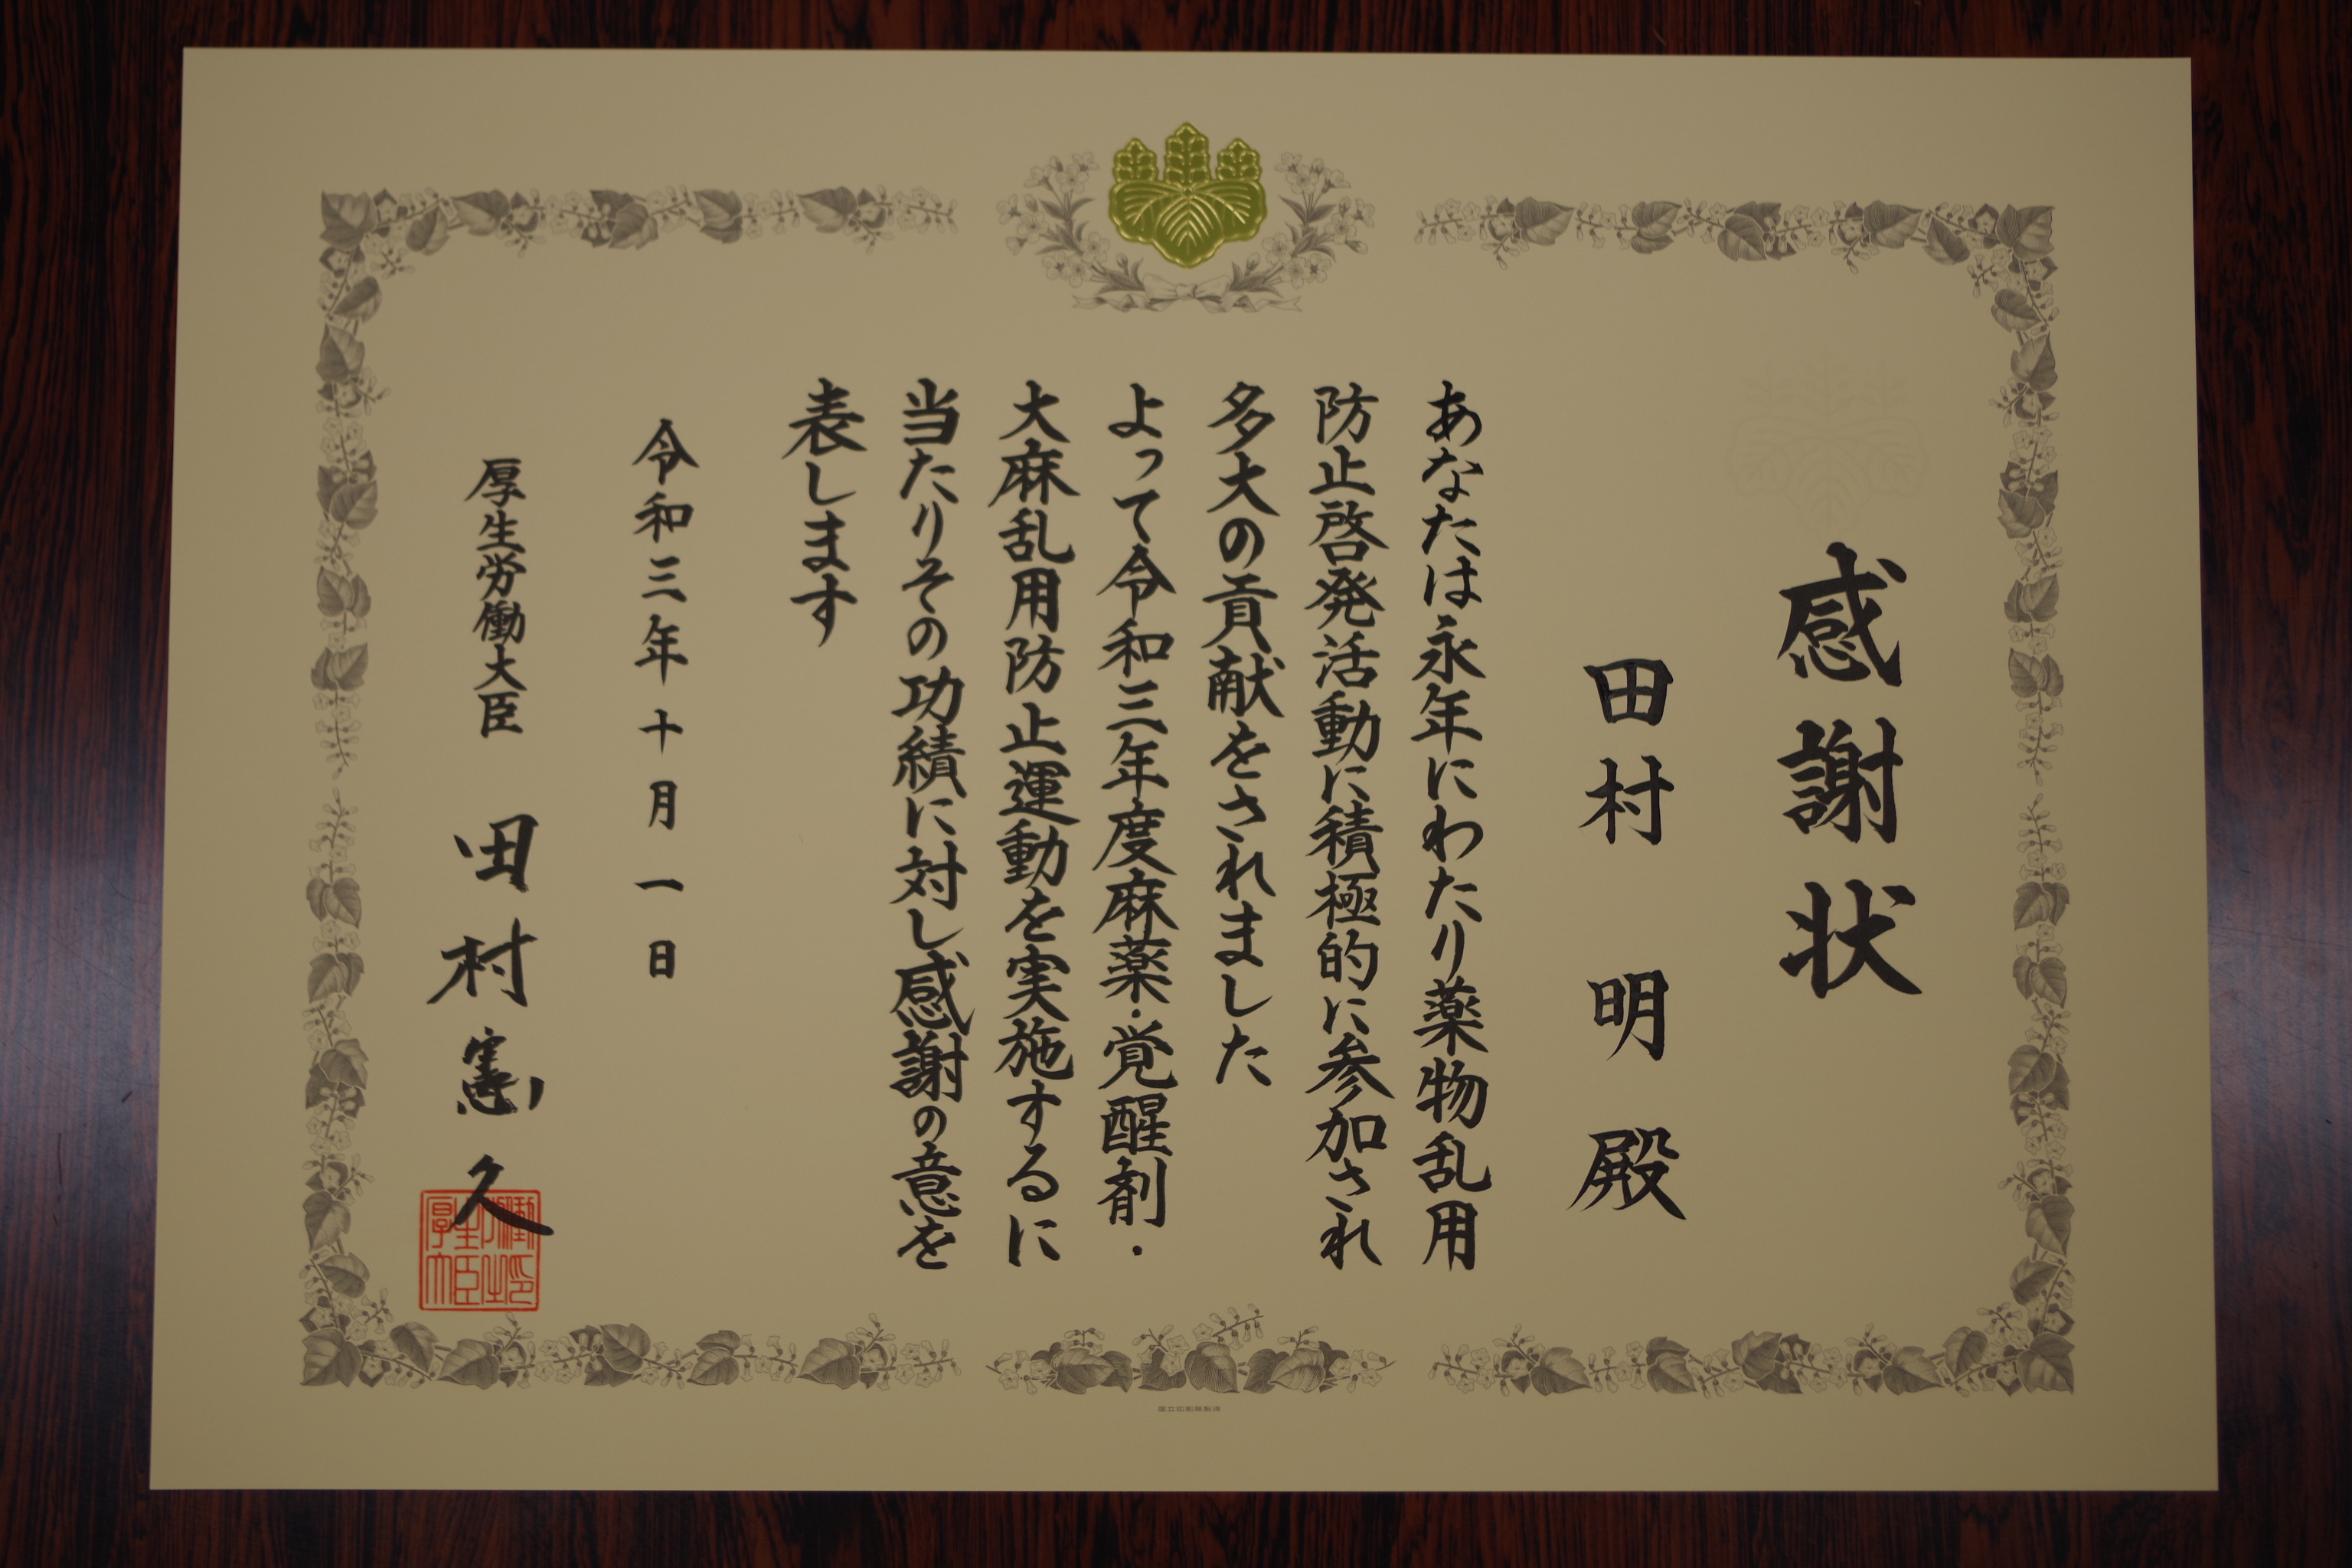 感謝状
田村 明 殿
あなたは永年にわたり薬物乱用
防止啓発活動に積極的に参加され
多大の貢献をされました
よって令和三年度麻薬・覚醒剤・
大麻乱用防止運動を実施するに
当たりその功績に対し感謝の意を
表します
令和三年十月一日
厚生労働大臣 田村憲久
厚生労働大臣之印
国立印刷局製造